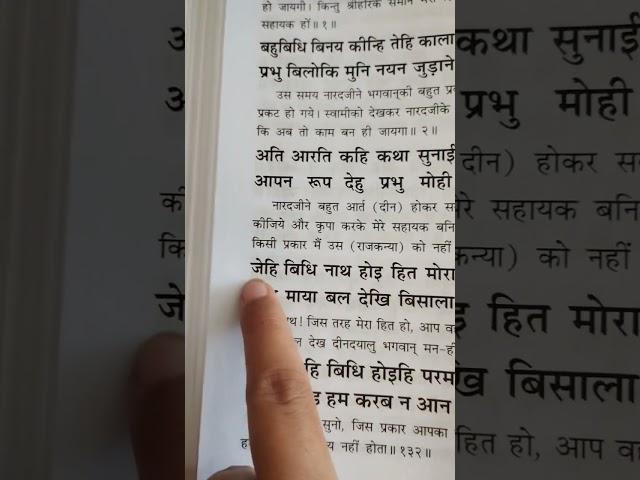 हो जायगी। किन्तु श्रीहरिके समान मेरा
सहायक हों॥ १॥
बहुबिधि बिनय कीन्हि तेहि काला
प्रभु बिलोकि मुनि नयन जुड़ाने
उस समय नारदजीने भगवान्‌की बहुत
प्रकट हो गये। स्वामीको देखकर नारदजीके
कि अब तो काम बन ही जायगा॥ २॥
अति आरति कहि कथा सुनाई
आपन रूप देहु प्रभु मोही
नारदजीने बहुत आर्त (दीन) होकर
कीजिये और कृपा करके मेरे सहायक बनि
किसी प्रकार मैं उस (राजकन्या) को नहीं
जेहि बिधि नाथ होइ हित मोरा
माया बल देखि बिसाला
जिस तरह मेरा हित हो, आप
देख दीनदयालु भगवान् मन-ही
हि बिधि होइहि परम
हम करब न आन
सुनो, जिस प्रकार आपका
नहीं होता॥ १३२॥